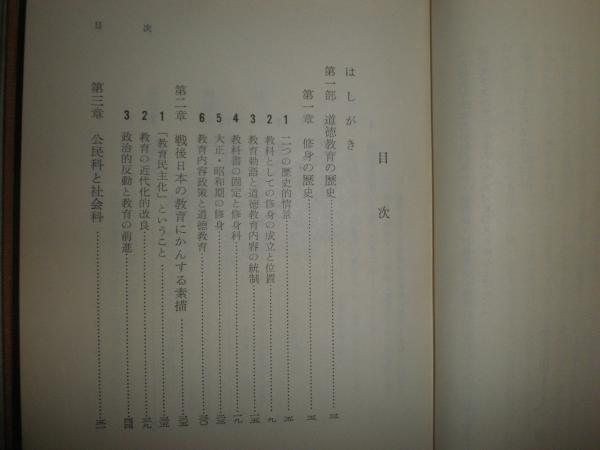 目次
はしがき
第一部 道徳教育の歴史
第一章 修身の歴史
1 二つの歴史的情景
2 教科としての修身の成立と位置
3 教育勅語と道徳教育内容の統制
4 教科書の固定と修身科
5 大正・昭和期の修身
6 教育内容政策と道徳教育
第二章 戦後日本の教育にかんする素描
1 「教育民主化」ということ
2 教育の近代化的改良
3 政治的反動と教育の前進
第三章 公民科と社会科
目次